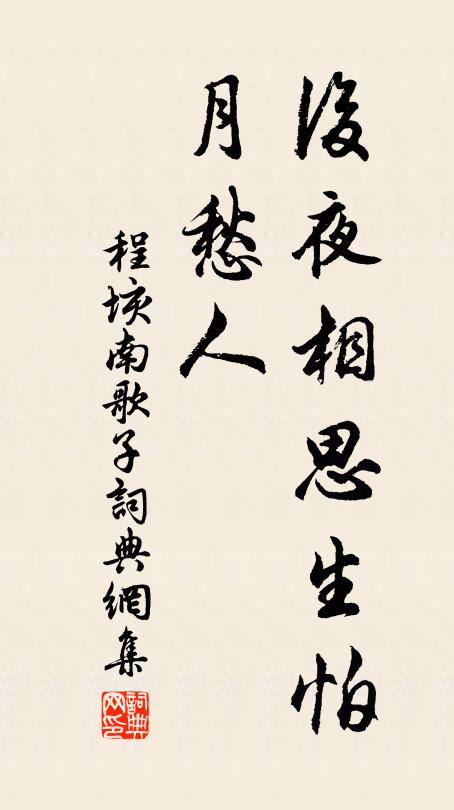 後夜相思生怕
月愁人
程垓南歌子詞典網集
詞典
网印